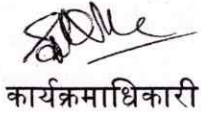 कार्यक्रमाधिकारी